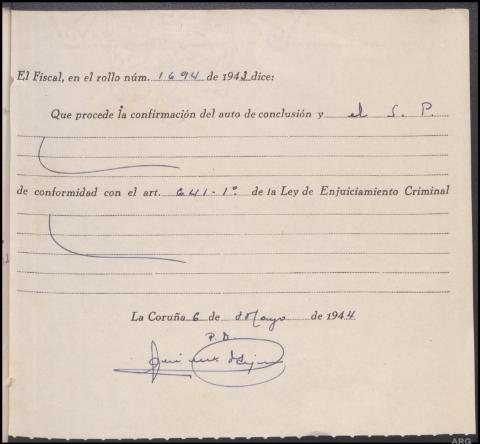 El Fiscal, en el rollo núm. 1694 de 1943 dice:
Que procede la confirmación del auto de conclusión y el S. P.
de conformidad con el art. 641-1º de la Ley de Enjuiciamiento Criminal
La Coruña 6 de Mayo de 1944
P.D.
ARG